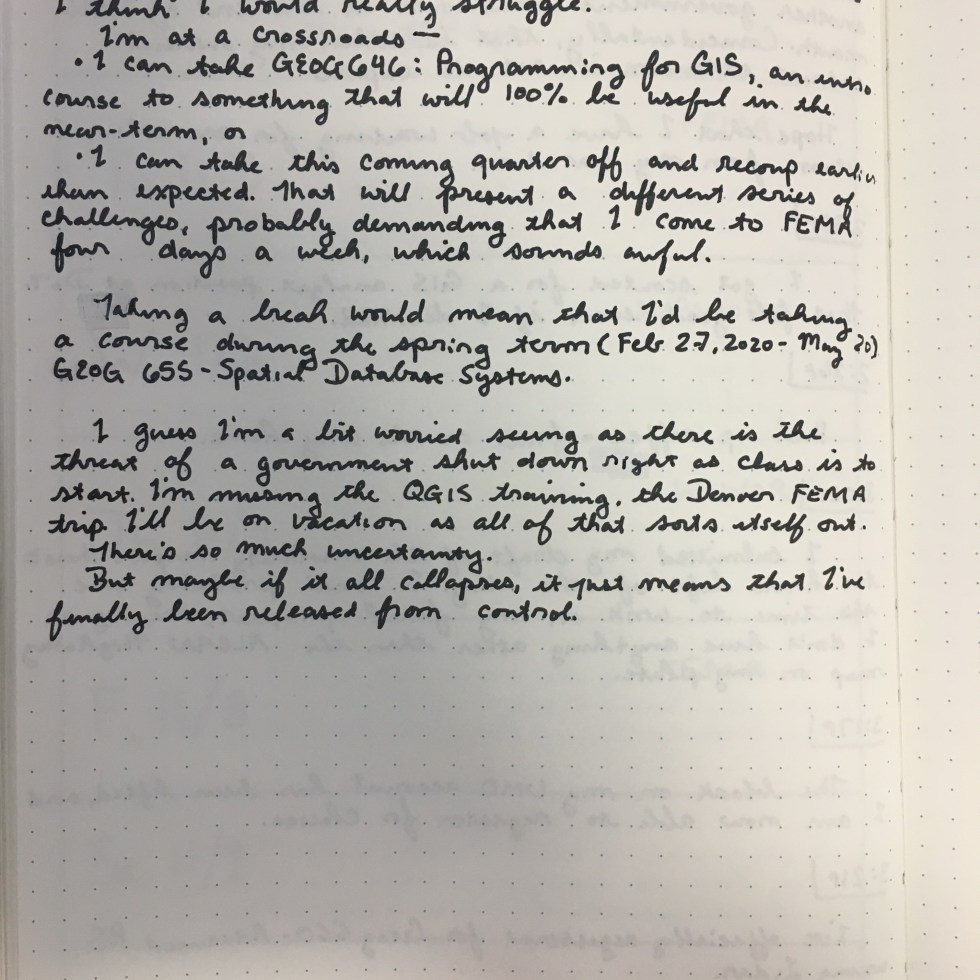 I think I would really struggle.
I'm at a crossroads —
• I can take GEOG 646: Programming for GIS, an intro
course to something that will 100% be useful in the
near-term, or
• I can take this coming quarter off and recoup earlier
than expected. That will present a different series of
challenges, probably demanding that I come to FEMA
four days a week, which sounds awful.
Taking a break would mean that I'd be taking
a course during the spring term (Feb 27, 2020 - May 20)
GEOG 655 - Spatial Database Systems.
I guess I'm a bit worried seeing as there is the
threat of a government shut down right as class is to
start. I'm missing the QGIS training, the Denver FEMA
trip. I'll be on vacation as all of that sorts itself out.
There's so much uncertainty.
But maybe if it all collapses, it just means that I've
finally been released from control.